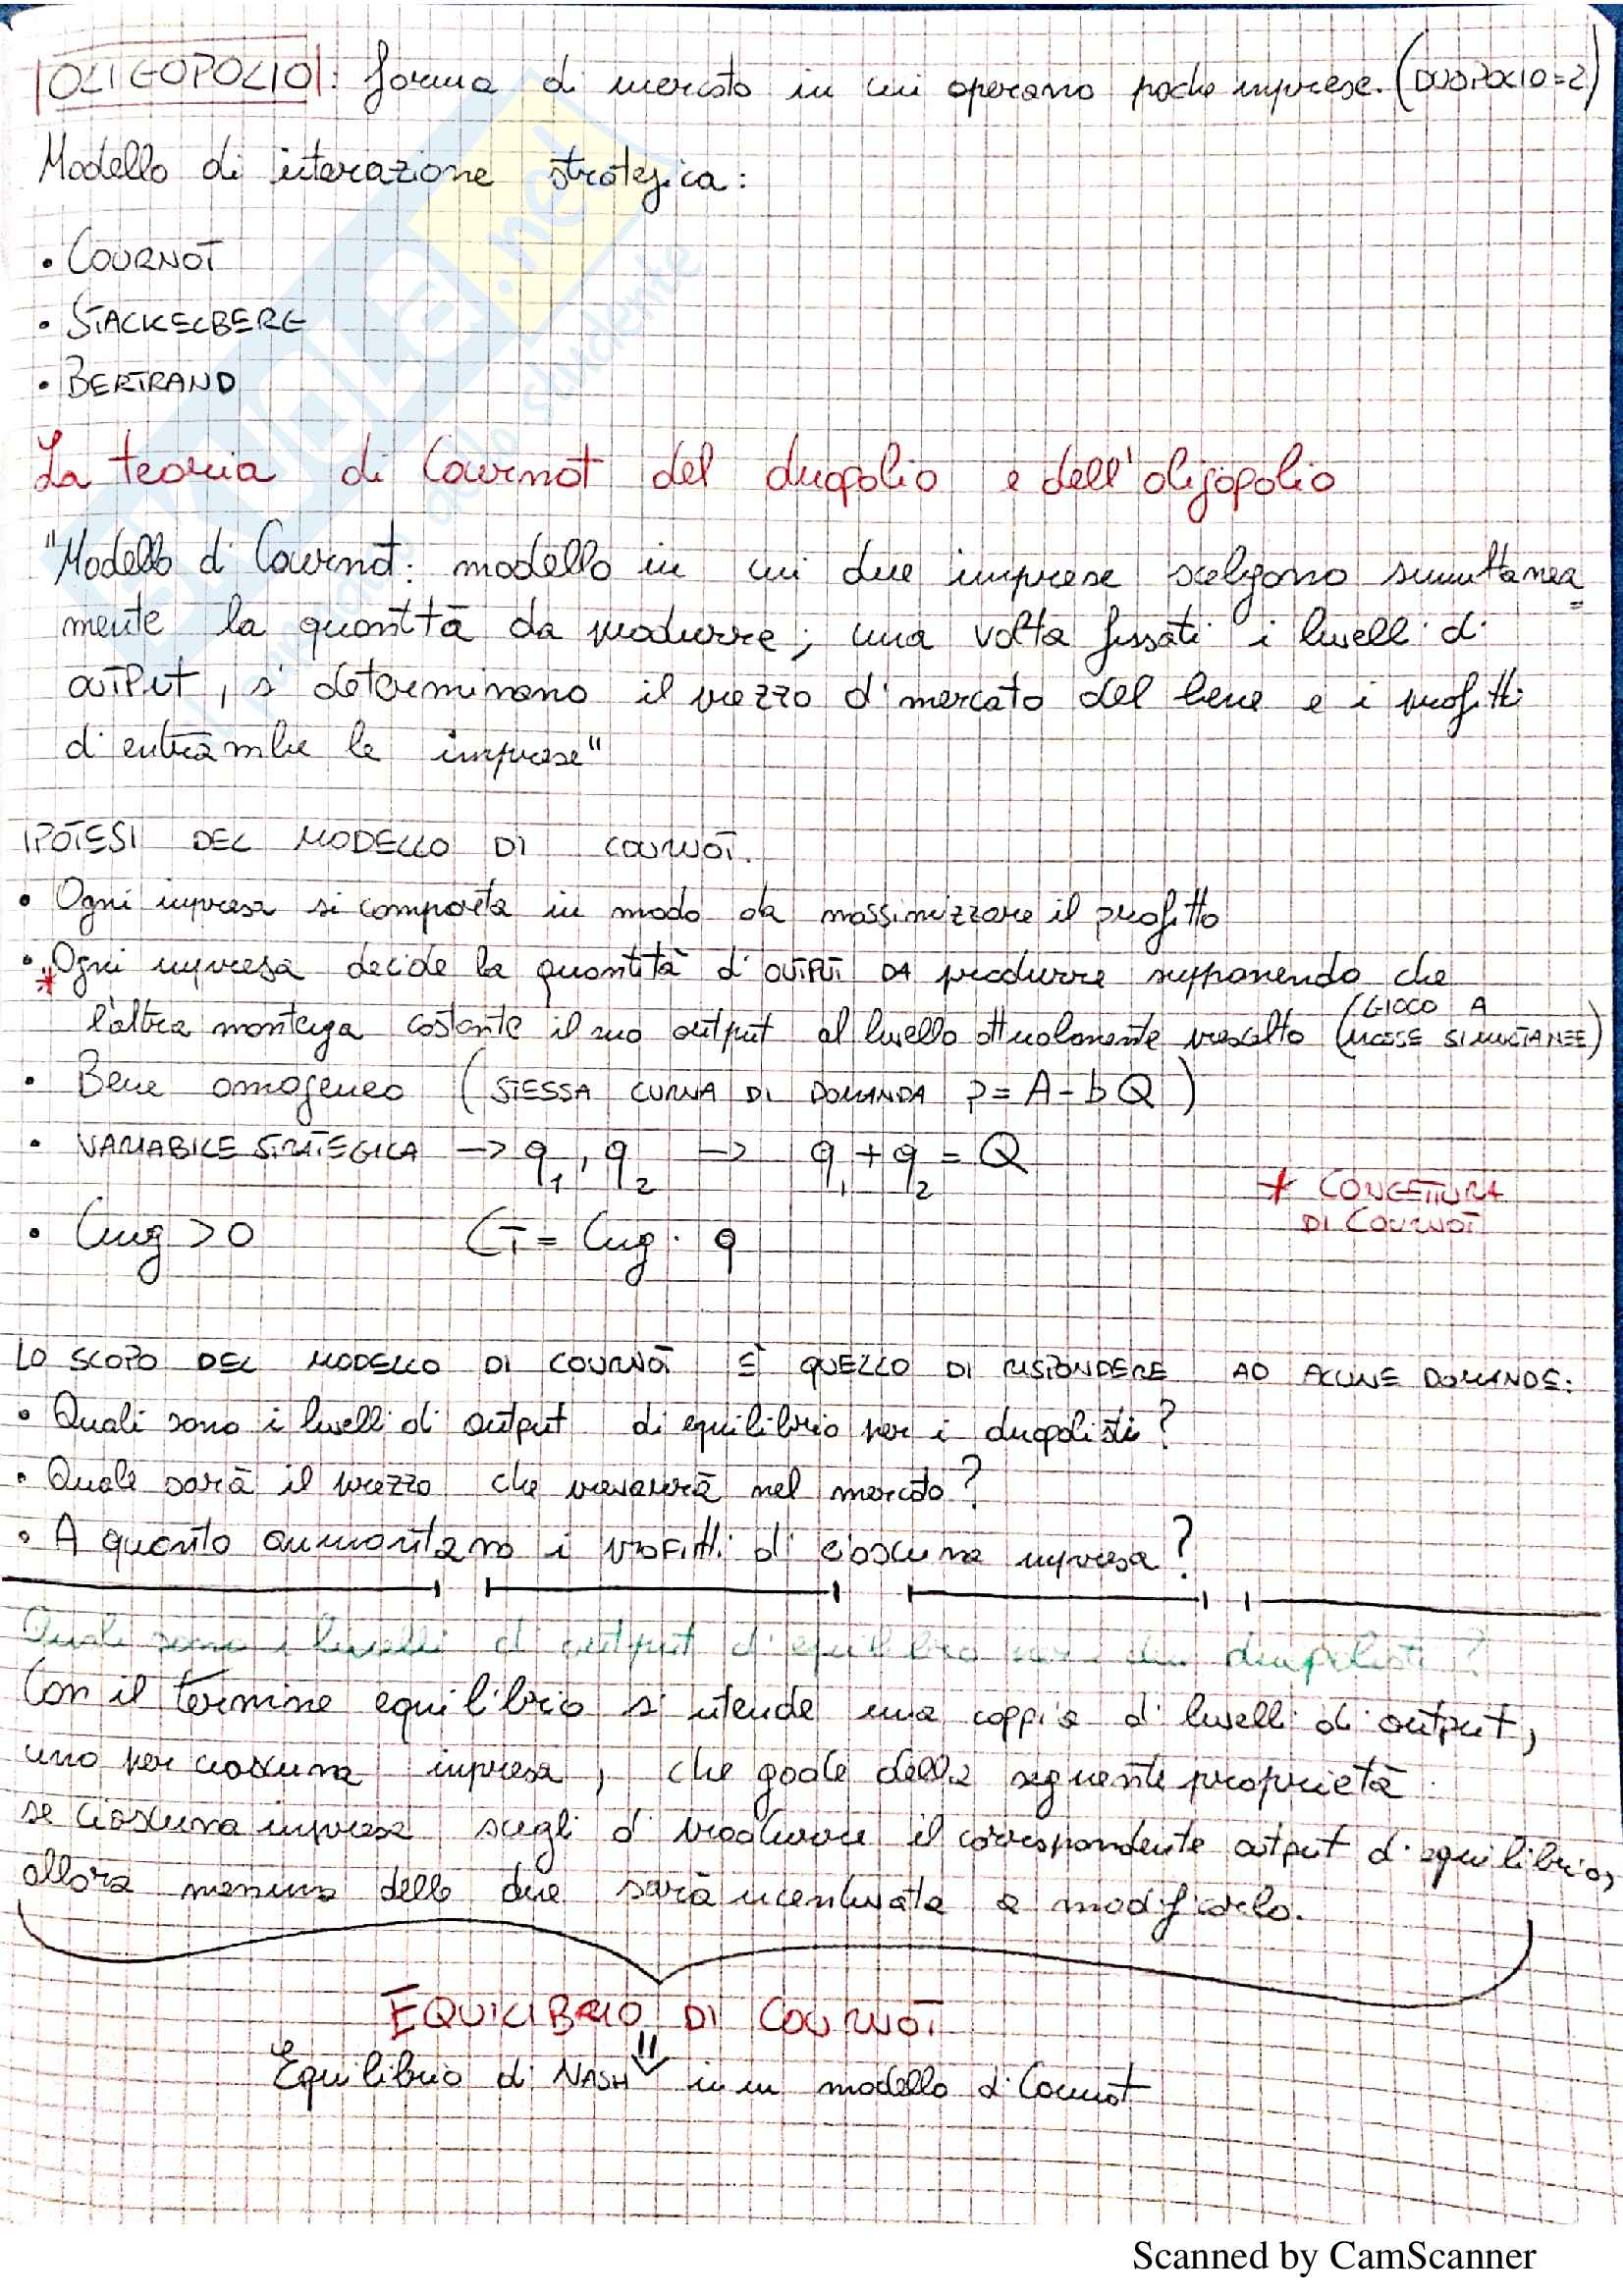 OLIGOPOLIO: forma di mercato in cui operano poche imprese. (DUOPOLIO=2)
Modello di interazione strategica:
• COURNOT
• STACKELBERG
• BERTRAND
La teoria di Cournot del duopolio e dell'oligopolio
"Modello di Cournot: modello in cui due imprese scelgono simultanea=
mente la quantità da produrre; una volta fissati i livelli di
output, si determinano il prezzo di mercato del bene e i profitti
di entrambe le imprese"
IPOTESI DEL MODELLO DI COURNOT.
• Ogni impresa si comporta in modo da massimizzare il profitto
• * Ogni impresa decide la quantità di output DA produrre supponendo che
l'altra mantenga costante il suo output al livello attualmente prescelto (GIOCO A MOSSE SIMULTANEE)
• Bene omogeneo (STESSA CURVA DI DOMANDA P = A - bQ)
• VARIABILE STRATEGICA -> q1, q2 -> q1 + q2 = Q
* CONGETTURA
DI COURNOT
• Cmg > 0 CT = Cmg · q
LO SCOPO DEL MODELLO DI COURNOT È QUELLO DI RISPONDERE AD ALCUNE DOMANDE:
• Quali sono i livelli di output di equilibrio per i duopolisti?
• Quale sarà il prezzo che prevarrà nel mercato?
• A quanto ammontano i profitti di ciascuna impresa?
Quali sono i livelli di output di equilibrio per i due duopolisti?
Con il termine equilibrio si intende una coppia di livelli di output,
uno per ciascuna impresa, che gode della seguente proprietà:
se ciascuna impresa scegli di produrre il corrispondente output di equilibrio,
allora nessuna delle due sarà incentivata a modificarlo.
EQUILIBRIO DI COURNOT
⇓
Equilibrio di NASH in un modello di Cournot
.net
dello studente
Scanned by CamScanner